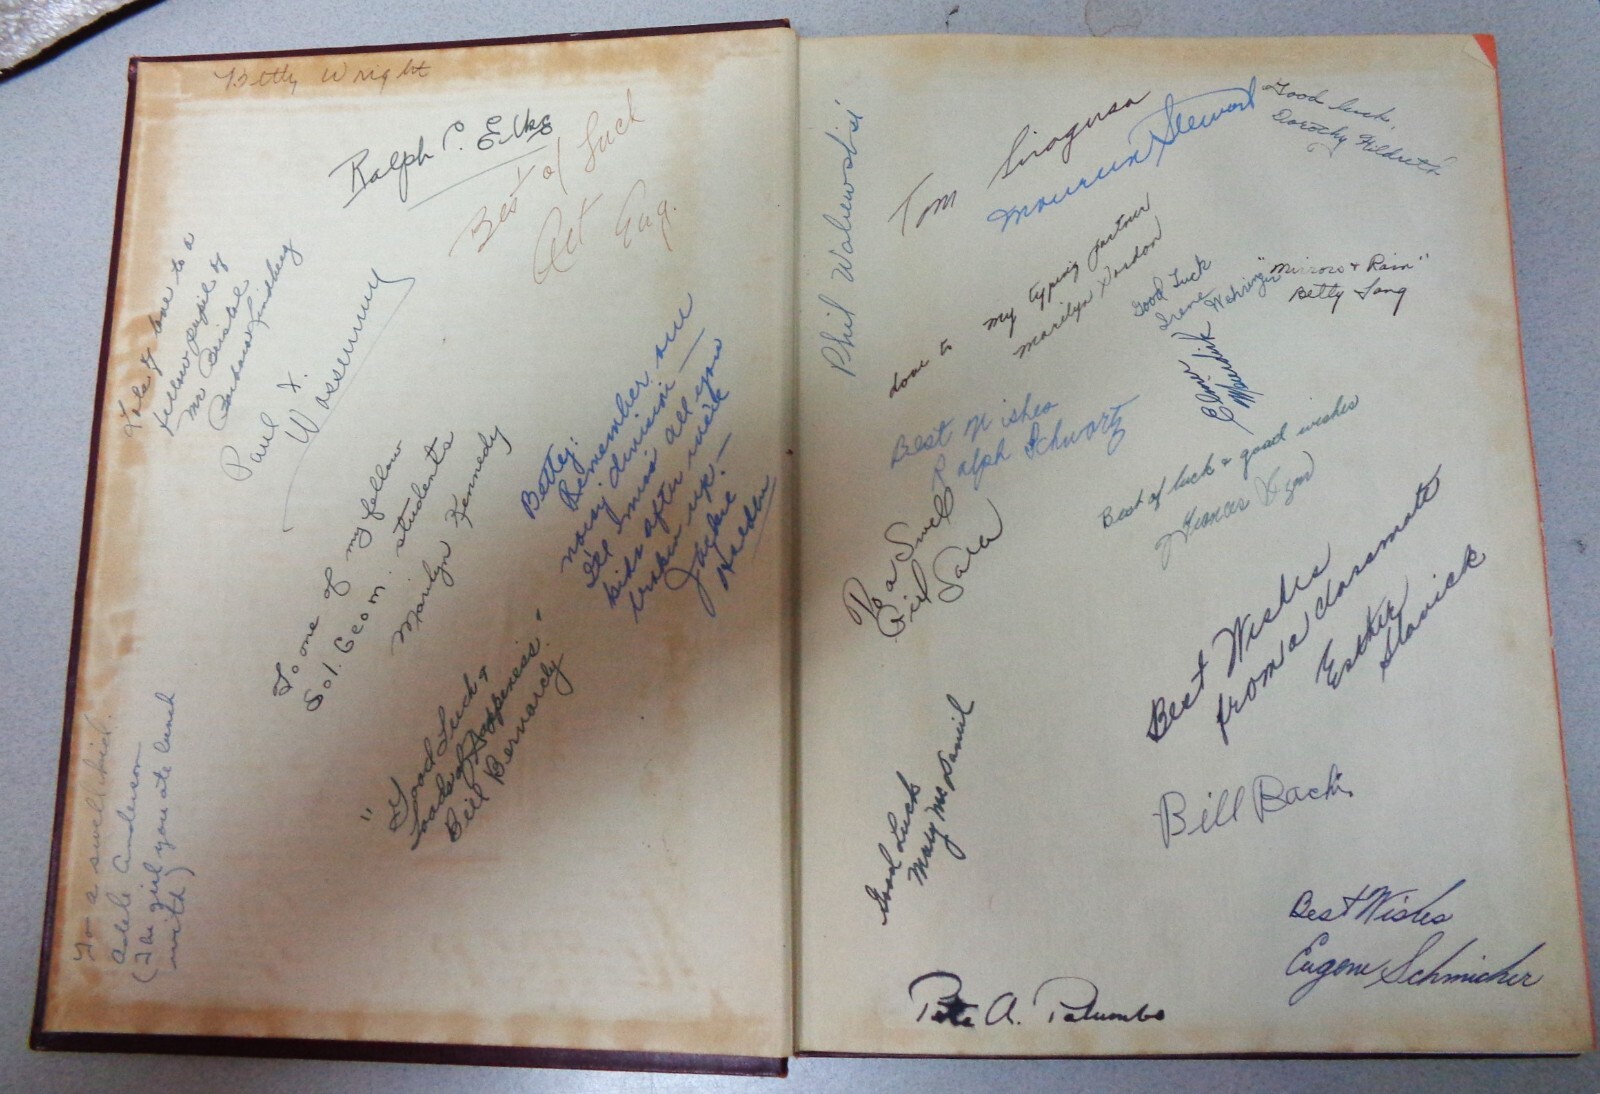 Betty Wright
Ralph C. Elks
Best of Luck
Art Eng.
Lots of love to a
fellow pupil of
Mr Bristol
Barbara Lindberg
Paul X.
Wassermann
Betty:
Remember our
noisy division —
I'll miss all you
kids after we're
broken up. —
Jackie
To one of my fellow
Sol. Geom. students
Marilyn Kennedy
"Good Luck &
loads of Happiness"
Bill Bernardy
To a swell kid.
Adele Anderson
(The girl you ate lunch
with)
Phil
Tom Siragusa
Maureen Stewart
Good luck,
Dorothy Hildreth
love to my typing partner
Marilyn Gordon
Good Luck
Irene
"Mirrors & Rain"
Betty Lang
Elinor
Best Wishes
Ralph Schwartz
Best of luck & good wishes
Frances
To a Swell
Girl Sara
Best Wishes
from a classmate
Esther
Slavick
Good Luck
Mary McDaniel
Bill Bachi
Best Wishes
Eugene Schmicher
Pete A. Palumbo